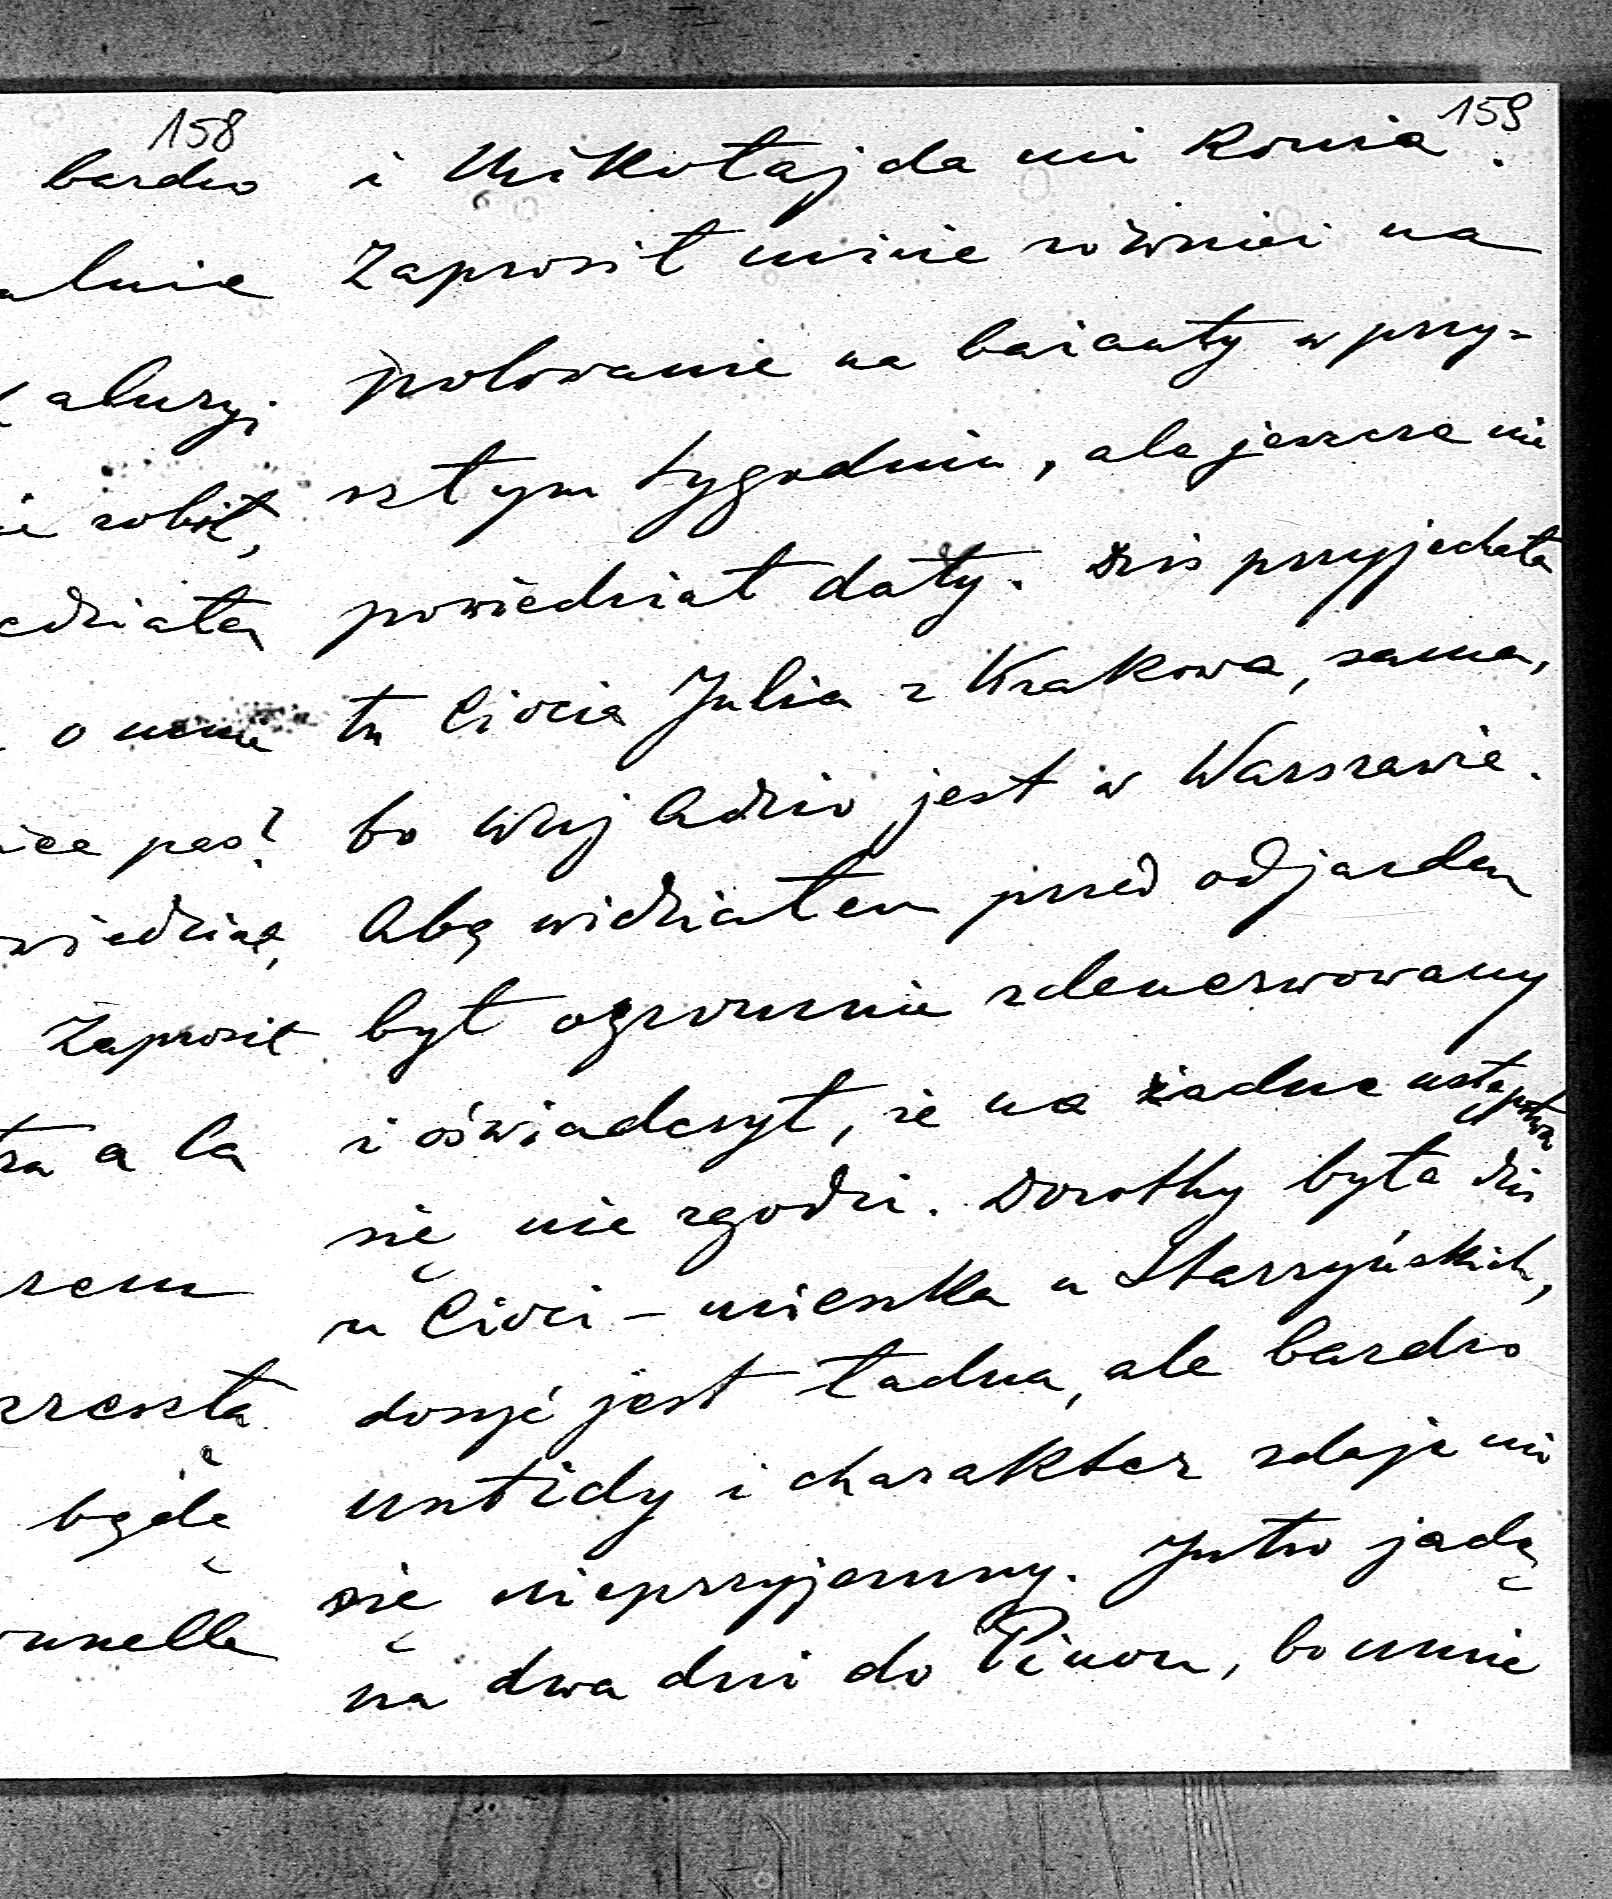 158
bardzo
alnie
aluzyj
ie robił,
edziała
o mnie
ice pas?
wiedział,
Zaprosił
tra a la
rem
zresztą
będę
onnelle
159
i Mikołaj da mi konia.
Zaprosił mnie również na
polowanie na bażanty w przy-
szłym tygodniu, ale jeszcze nie
powiedział daty. Dziś przyjechała
tu Ciocia Julia z Krakowa, sama,
bo Wuj Adzio jest w Warszawie.
Abę widziałem przed odjazdem
był ogromnie zdenerwowany
i oświadczył, że na żadne ustępstwa
się nie zgodzi. Dorothy była dziś
u Cioci – mieszka u Starzyńskich,
dosyć jest ładna, ale bardzo
untidy i charakter zdaje mi
się nieprzyjemny. Jutro jadę
na dwa dni do Pinon, bo mnie